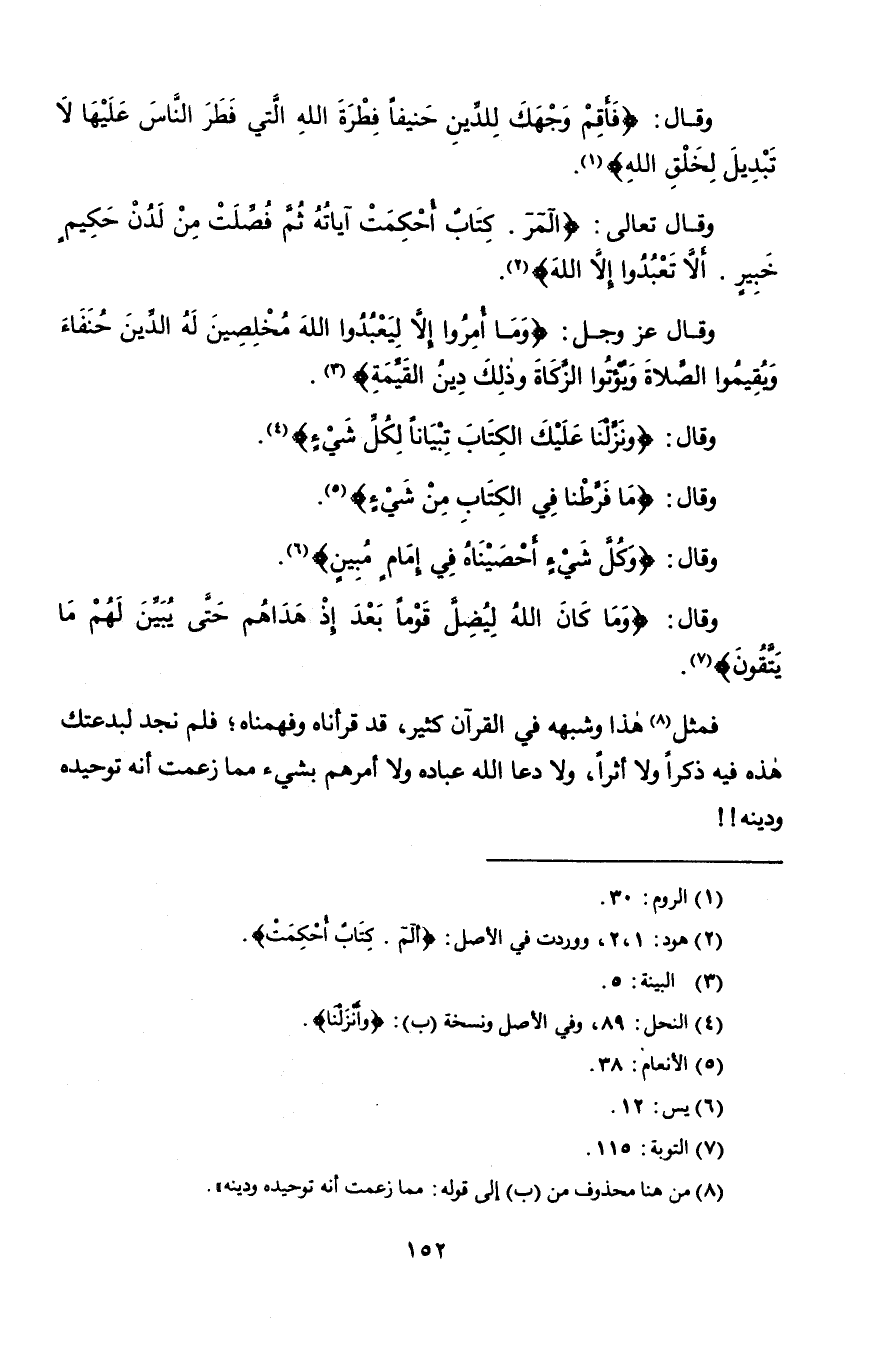 وقــال: ﴿فَأَقِمْ وَجْهَكَ لِلدِّينِ حَنيفاً فِطْرَةَ اللهِ الَّتي فَطَرَ النَّاسَ عَلَيْهَا لَا
تَبْدِيلَ لِخَلْقِ اللهِ﴾(١).
وقــال تعالى: ﴿الٓمٓرٓ . كِتَابٌ أُحْكِمَتْ آياتُهُ ثُمَّ فُصِّلَتْ مِنْ لَدُنْ حَكِيمٍ
خَبِيرٍ . أَلَّا تَعْبُدُوا إِلَّا اللهَ﴾(٢).
وقــال عز وجــل: ﴿وَمَــا أُمِرُوا إِلَّا لِيَعْبُدُوا اللهَ مُخْلِصِينَ لَهُ الدِّينَ حُنَفَاءَ
وَيُقِيمُوا الصَّلاةَ وَيُؤْتُوا الزَّكَاةَ وذٰلِكَ دِينُ القَيِّمَةِ﴾ (٣) .
وقال: ﴿ونَزَّلْنَا عَلَيْكَ الكِتَابَ تِبْيَاناً لِكُلِّ شَيْءٍ﴾(٤).
وقال: ﴿مَا فَرَّطْنا فِي الكِتَابِ مِنْ شَيْءٍ﴾(٥).
وقال: ﴿وَكُلَّ شَيْءٍ أَحْصَيْنَاهُ فِي إِمَامٍ مُبِينٍ﴾(٦).
وقال: ﴿وَمَا كَانَ اللهُ لِيُضِلَّ قَوْماً بَعْدَ إِذْ هَدَاهُم حَتَّى يُبَيِّنَ لَهُمْ مَا
يَتَّقُونَ﴾(٧).
فمثل(٨) هٰذا وشبهه في القرآن كثير، قد قرأناه وفهمناه؛ فلم نجد لبدعتك
هٰذه فيه ذكراً ولا أثراً، ولا دعا الله عباده ولا أمرهم بشيء مما زعمت أنه توحيده
ودينه!!
(١) الروم: ٣٠.
(٢) هود: ٢،١، ووردت في الأصل: ﴿الٓمٓ . كِتَابٌ أُحْكِمَتْ﴾.
(٣) البينة: ٥.
(٤) النحل: ٨٩، وفي الأصل ونسخة (ب): ﴿وأَنْزَلْنَا﴾.
(٥) الأنعام: ٣٨.
(٦) يس: ١٢.
(٧) التوبة: ١١٥.
(٨) من هنا محذوف من (ب) إلى قوله: مما زعمت أنه توحيده ودينه».
١٥٢